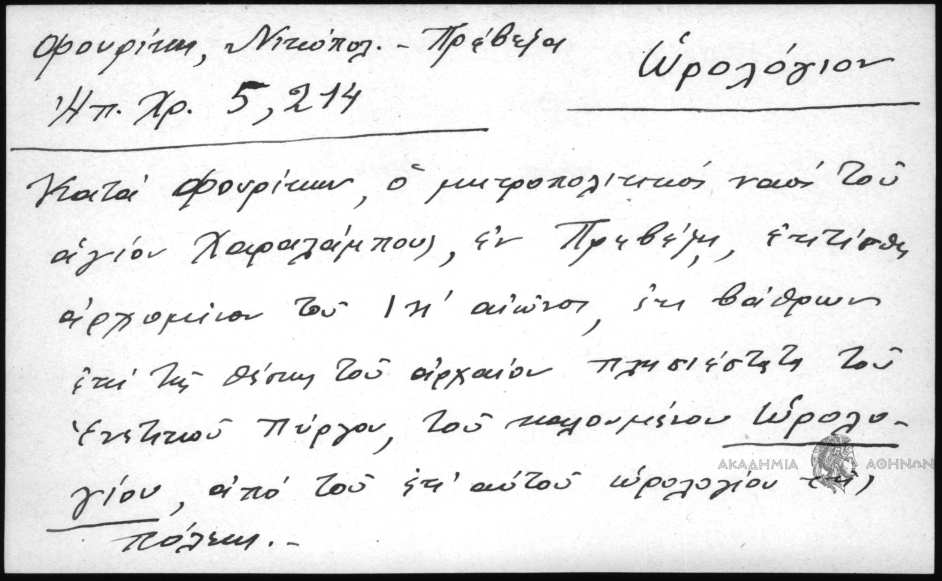 Φουρίκη, Νικόπολ. - Πρέβεζα
Ὡρολόγιον
Ἠπ. Χρ. 5, 214
Κατά Φουρίκην, ὁ μητροπολιτικός ναός τοῦ
ἁγίου Χαραλάμπους, ἐν Πρεβέζῃ, ἐκτίσθη
ἀρχομένου τοῦ ΙΗ' αἰῶνος, ἐκ βάθρων
ἐπί τῆς θέσης τοῦ ἀρχαίου πλησιέστατα τοῦ
Ἑνετικοῦ Πύργου, τοῦ καλουμένου Ὡρολο-
γίου, ἀπό τοῦ ἐπ' αὐτοῦ ὡρολογίου τῆς
πόλεως. -
ΑΚΑΔΗΜΙΑ ΑΘΗΝΩΝ